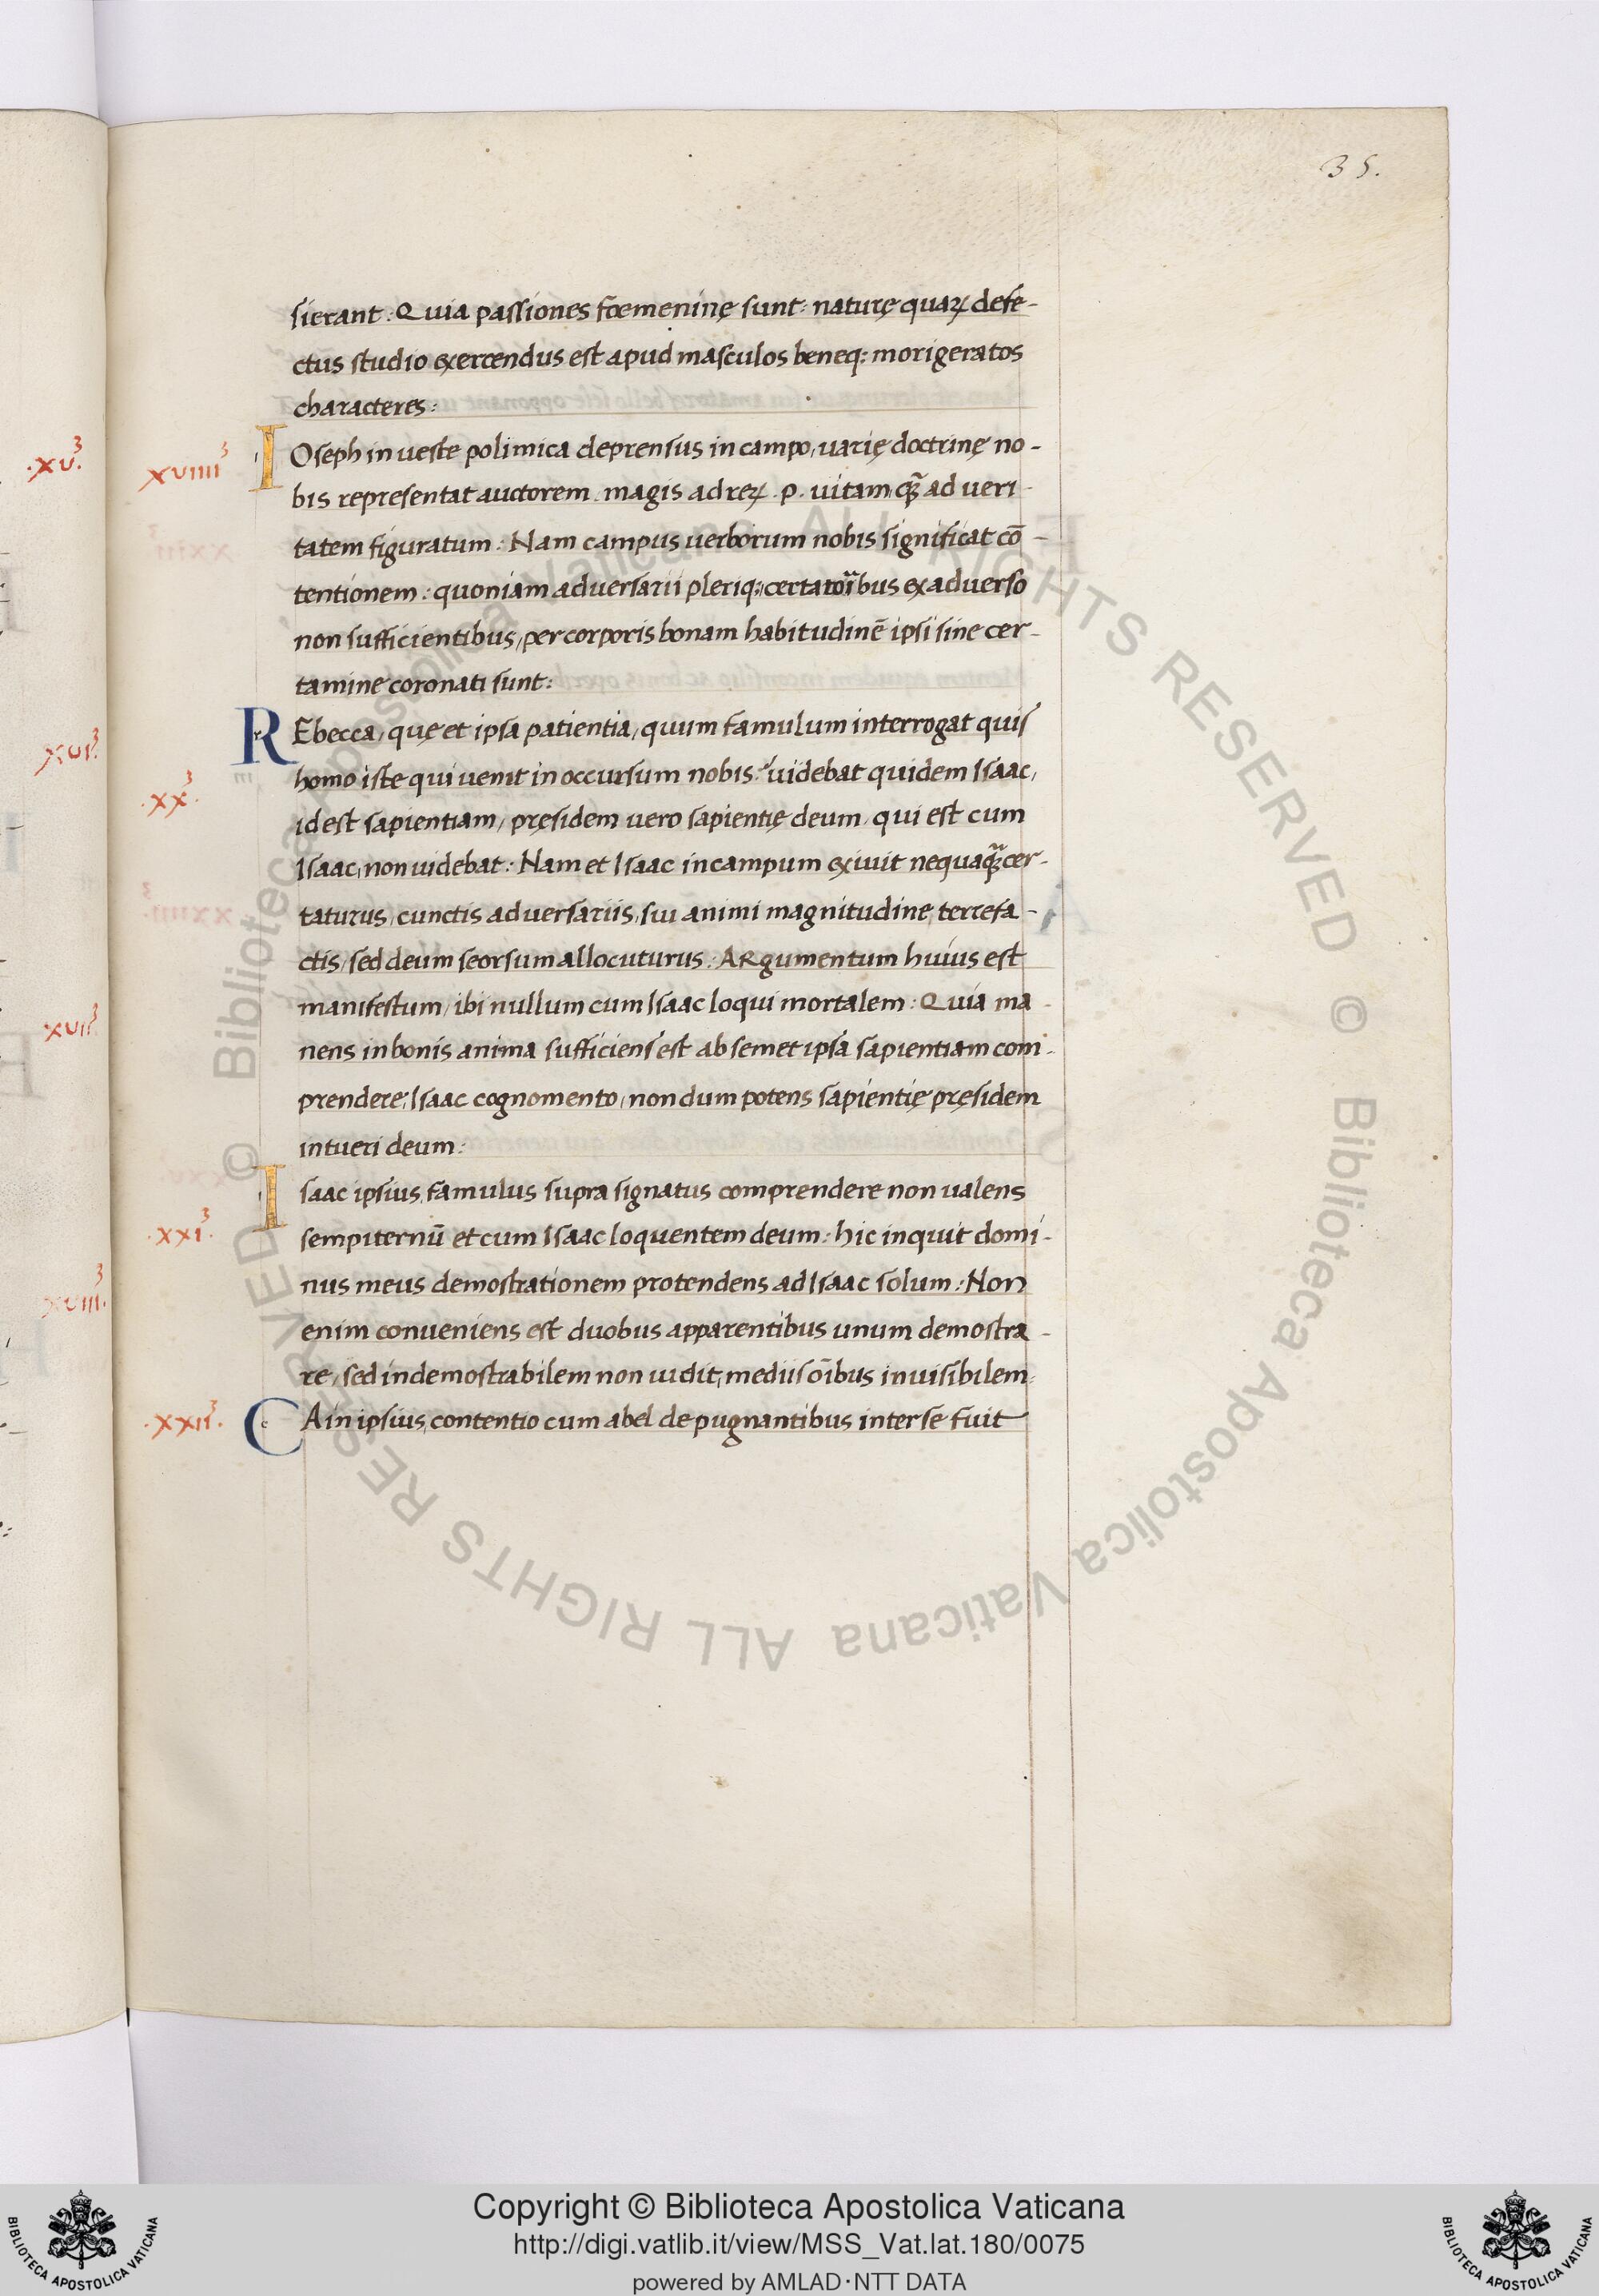 35.
sierant: Quia passiones fœmeninę sunt: naturę quaꝝ defe-
ctus studio exercendus est apud masculos beneq; morigeratos
characteres:
xviiii³ IOseph in ueste polimica deprensus in campo, uarię doctrinę no-
bis representat auctorem. magis ad reꝝ .p. uitam, qᷓ ad veri-
tatem figuratum: Nam campus uerborum nobis significat cō-
tentionem: quoniam aduersarii pleriq; certatoribus ex aduerso
non sufficientibus, per corporis bonam habitudinē ipsi sine cer-
tamine coronati sunt:
REbecca, quę et ipsa patientia, quum famulum interrogat quis
xx³. homo iste qui uenit in occursum nobis: uidebat quidem Isaac,
id est sapientiam, pręsidem vero sapientię deum, qui est cum
Isaac, non uidebat: Nam et Isaac in campum exiuit nequaqᷓ cer-
taturus, cunctis aduersariis, sui animi magnitudine, terrefa-
ctis, sed deum seorsum allocuturus: ARgumentum huius est
manifestum, ibi nullum cum Isaac loqui mortalem: Quia ma-
nens in bonis anima sufficiens est ab semet ipsa sapientiam com-
prendere, Isaac cognomento, non dum potens sapientię pręsidem
intueri deum:
Isaac ipsius, famulus supra signatus comprendere non ualens
xxi³. sempiternū et cum Isaac loquentem deum: hic inquit domi-
nus meus demostrationem protendens ad Isaac solum: Non
enim conueniens est duobus apparentibus unum demostra-
re, sed indemostrabilem non uidit, mediis oībus inuisibilem:
.xxii³. CAin ipsius, contentio cum abel de pugnantibus inter se fuit
.xv³.
xvi³.
xvii³.
xviii³.
© Biblioteca Apostolica Vaticana ALL RIGHTS RESERVED © Biblioteca Apostolica Vaticana ALL RIGHTS RESERVED
Copyright © Biblioteca Apostolica Vaticana
http://digi.vatlib.it/view/MSS_Vat.lat.180/0075
powered by AMLAD·NTT DATA
BIBLIOTECA APOSTOLICA VATICANA
BIBLIOTECA APOSTOLICA VATICANA